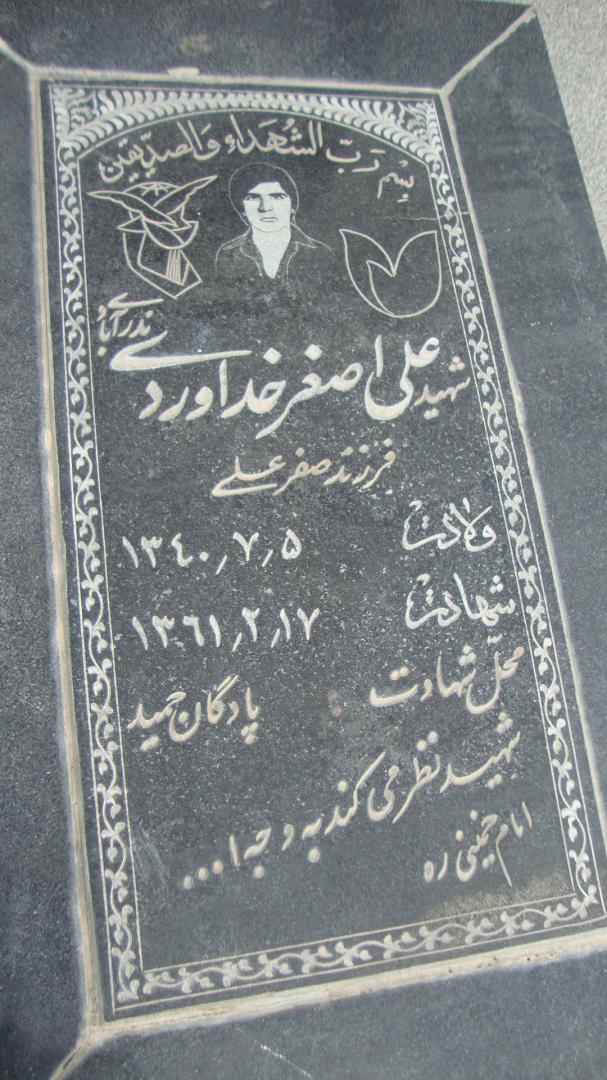 بسم رَبّ الشُهَداء وَالصِدّیقین
شهید علی اصغر خداوردی
ندرآبادی
فرزند صفرعلی
ولادت ۱۳٤۰٫۷٫۵
شهادت ۱۳٦۱٫۲٫۱۷
محلّ شهادت : پادگان حمید
شهید نظر می کند به وجه ا...
امام خمینی ره